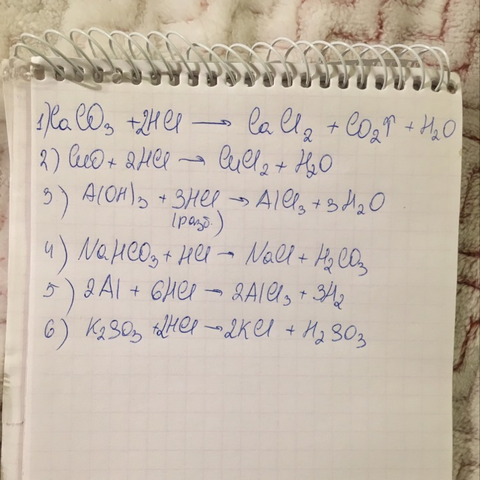 1) CaCO₃ + 2HCl → CaCl₂ + CO₂↑ + H₂O
2) CuO + 2HCl → CuCl₂ + H₂O
3) Al(OH)₃ + 3HCl → AlCl₃ + 3H₂O
(разб)
4) NaHCO₃ + HCl → NaCl + H₂CO₃
5) 2Al + 6HCl → 2AlCl₃ + 3H₂
6) K₂SO₃ + 2HCl → 2KCl + H₂SO₃